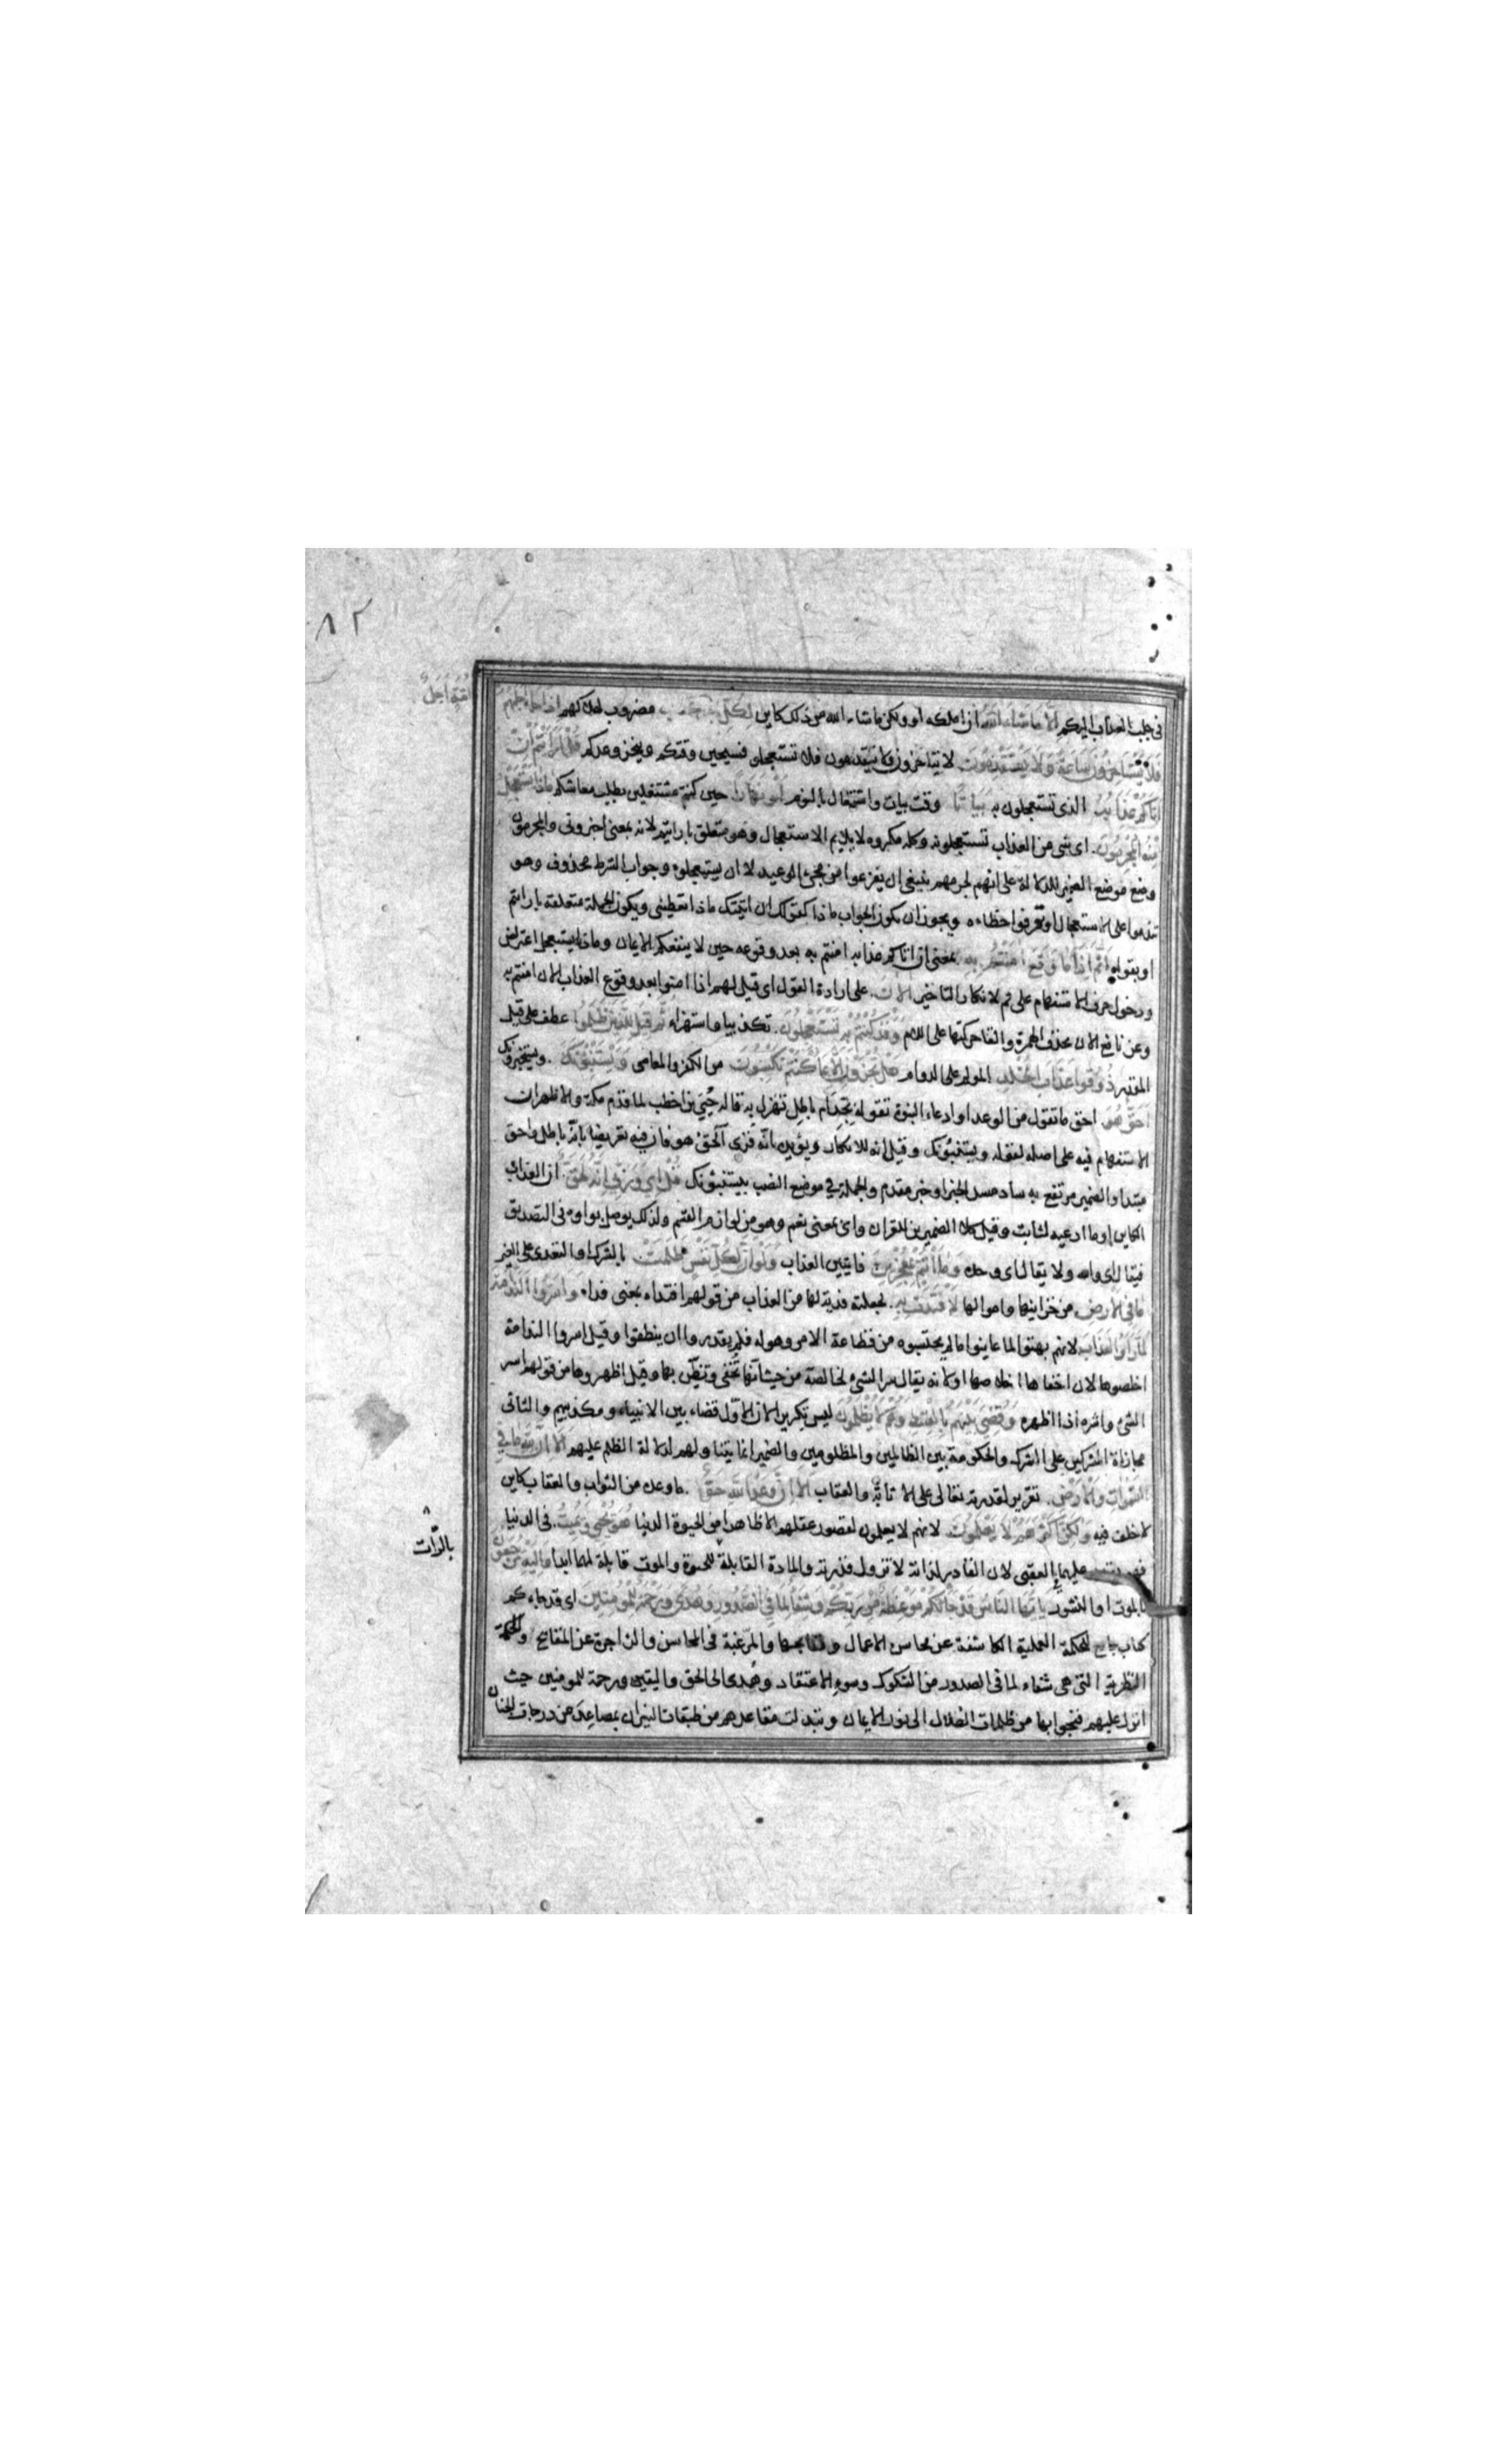 ٨٢
امة اجل
فى جلب العذاب اليكم الا ما شاء الله ان املكه او ولكن ما شاء الله من ذلك كاين لكل مضروب لهلاكهم اذا جاء اجلهم
فلا يستاخرون ساعة ولا يستقدمون لا يتاخرون ولا يتقدمون فلا تستعجلو فسيحين وقتكم وينجز وعدكم قل ارايتم ان
اتاكم عذابه الذى تستعجلون به بياتا وقت بيات واشتغال بالنوم او نهارا حين كنتم مشتغلين بطلب معاشكم ماذا يستعجل
منه المجرمون. اى شى من العذاب تستعجلونه وكله مكروه لا يلايم الاستعجال وهو متعلق بارايتم لانه بمعنى اخبرونى والمجرمون
وضع موضع الضمير للدلالة على انهم لجرمهم ينبغى ان يفزعوا من مجىء الوعيد لا ان يستعجلوه وجواب الشرط محذوف وهو
تندموا على الاستعجال او تعرفوا خطاءه ويجوز ان يكون الجواب ماذا كقولك ان اتيتك ماذا تعطينى ويكون الجملة متعلقة بارايتم
او بقوله اثم اذا ما وقع امنتم به بمعنى ان اتاكم عذابه امنتم به بعد وقوعه حين لا ينفعكم الايمان وماذا يستعجل اعتراض
ودخول حرف الاستفهام على ثم لانكار التاخير الان. على ارادة القول اى قيل لهم اذا امنوا بعد وقوع العذاب الان امنتم به
وعن نافع الان بحذف الهمزة والقا حركتها على اللام وقد كنتم به تستعجلون. تكذيبا واستهزاء ثم قيل للذين ظلموا عطف على قيل
المقدر ذوقوا عذاب الخلد المولم على الدوام هل تجزون الا بما كنتم تكسبون من الكفر والمعاصى ويستنبؤنك. ويستخبرونك
احق هو احق ما تقول من الوعد او ادعاء النبوة تقوله بجد ام باطل تهزل به قاله حيى بن اخطب لما قدم مكة والاظهر ان
الاستفهام فيه على اصله لقوله ويستنبؤنك وقيل انه للانكار ويؤيده انه قرى آلحق هو فان فيه تعريضا بانه باطل واحق
مبتدا والضمير مرتفع به ساد مسد الخبر او خبر مقدم والجملة فى موضع النصب بيستنبؤنك قل اى وربى انه لحق ان العذاب
الكاين او ما ادعيه لثابت وقيل كلا الضميرين للقران واى بمعنى نعم وهو من لوازم القسم ولذلك يوصل بواوه فى التصديق
فيقال اى والله ولا يقال اى وحده وما انتم بمعجزين فايتين العذاب ولو ان لكل نفس ظلمت بالشرك او التعدى على الغير
ما فى الارض من خزاينها واموالها لافتدت به. لجعلته فدية لها من العذاب من قولهم افتداه بمعنى فداه واسروا الندامة
لما راوا العذاب لانهم بهتوا لما عاينوا ما لم يحتسبوه من فظاعة الامر وهوله فلم يقدروا ان ينطقوا وقيل اسروا الندامة
اخلصوها لان اخفاها اخلاصها او لانه يقال سر الشىء لخالصته من حيث انها تخفى وتضن بها وقيل اظهروها من قولهم اسر
الشئ واشره اذا اظهره وقضى بينهم بالقسط وهم لا يظلمون ليس تكريرا لان الاول قضاء بين الانبياء ومكذبيهم والثانى
مجازاة المشركين على الشرك والحكومة بين الظالمين والمظلومين والضمير انما يتناولهم لدلالة الظلم عليهم الا ان لله ما فى
السموات والارض. تقرير لقدرته تعالى على الاثابة والعقاب الا ان وعد الله حق. ما وعده من الثواب والعقاب كاين
لا خلف فيه ولكن اكثرهم لا يعلمون لانهم لا يعلمون لقصور عقلهم الا ظاهرا من الحيوة الدنيا هو يحيى ويميت. فى الدنيا
فهو يقدر عليهما فى العقبى لان القادر لذاته لا تزول قدرته والمادة القابلة للحيوة والموت قابلة لهما ابدا واليه ترجعون
بالموت او النشور يا ايها الناس قد جاءتكم موعظة من ربكم وشفا لما فى الصدور وهدى ورحمة للمومنين اى قد جاءكم
كتاب جامع للحكمة العملية الكاشفة عن محاسن الاعمال ومقابحها والمرغبة فى المحاسن والزاجرة عن المقابح والحكمة
النظرية التى هى شفاء لما فى الصدور من الشكوك وسوء الاعتقاد وهدى الى الحق واليقين ورحمة للمومنين حيث
انزل عليهم فنجوا بها من ظلمات الضلال الى نور الايمان وتبدلت مقاعدهم من طبقات النيران بمصاعد من درجات الجنان